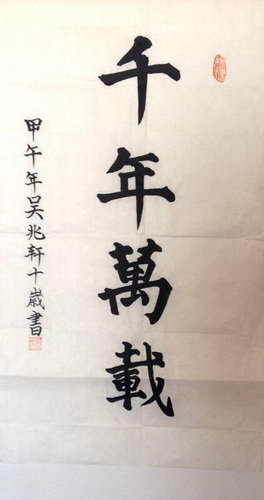 千年萬載
甲午年吴兆軒十歲書